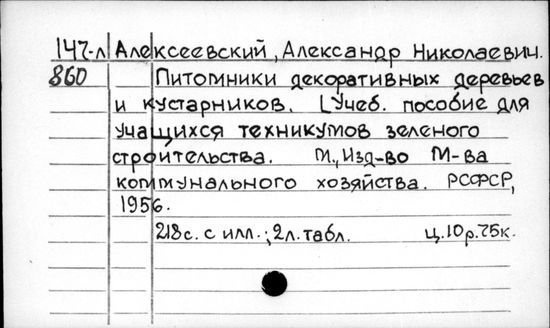 147-л Алексеевский, Александр Николаевич.
860 Питомники декоративных деревьев
и кустарников. [Учеб. пособие для
учащихся техникумов зеленого
строительства. М., Изд-во М-ва
коммунального хозяйства. РСФСР,
1956.
218с. с илл.; 2л. табл. ц. 10р. 75к.